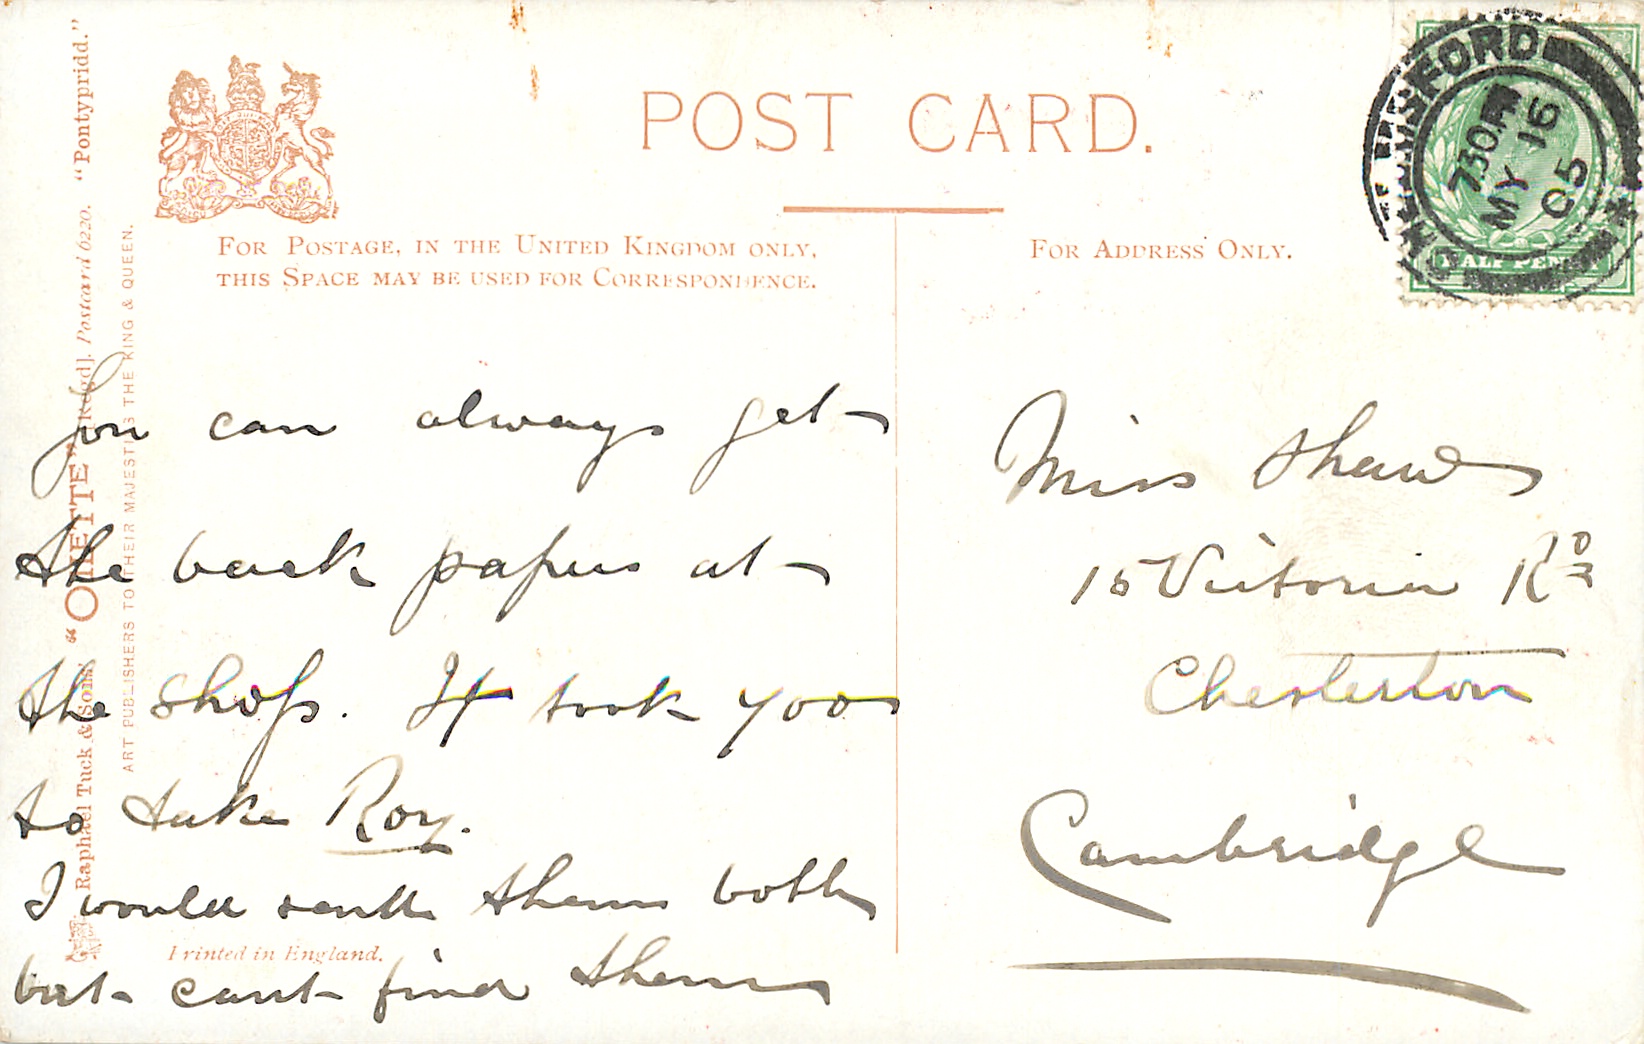 POST CARD.
FOR POSTAGE, IN THE UNITED KINGDOM ONLY,
THIS SPACE MAY BE USED FOR CORRESPONDENCE.
FOR ADDRESS ONLY.
You can always get
the back papers at
the shop. It took
to take Roy.
I would send them both
but cant find them
Miss Shaw
15 Victoria Rd
Chesterton
Cambridge
Printed in England.
Raphael Tuck & Sons' "OILETTE" [Regd]. Postcard 6220. "Pontypridd."
ART PUBLISHERS TO THEIR MAJESTIES THE KING & QUEEN.
7.30 PM
MY 16
05
HALF PENNY